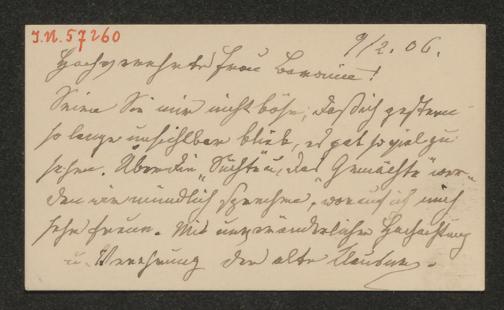 I.N. 57260
9/2. 06.
Hochverehrte Frau Baronin!
Seien Sie mir nicht böse, daß ich gestern
so lange unsichtbar blieb, es gab so viel zu
sehen. Über die „Sucht u. das Gemächte" wer-
den wir mündlich sprechen, worauf ich mich
sehr freue. Mit unveränderlicher Hochachtung
u. Verehrung der alte